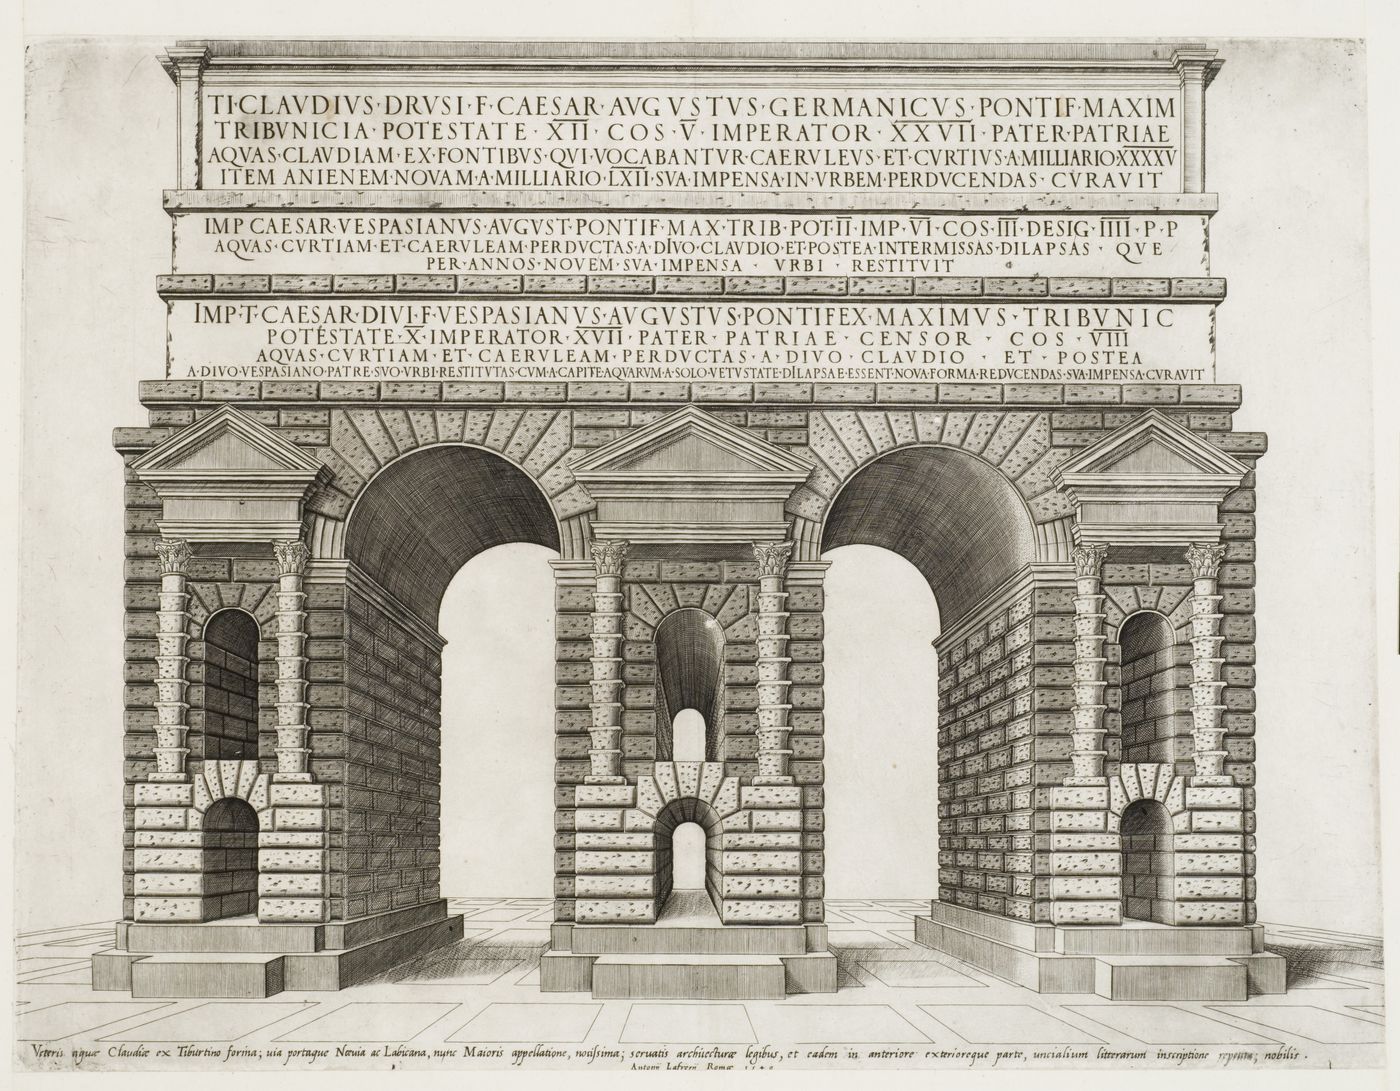 TI·CLAVDIVS·DRVSI·F·CAESAR·AVGVSTVS·GERMANICVS·PONTIF·MAXIM
TRIBVNICIA·POTESTATE·XII·COS·V·IMPERATOR·XXVII·PATER·PATRIAE
AQVAS·CLAVDIAM·EX·FONTIBVS·QVI·VOCABANTVR·CAERVLEVS·ET·CVRTIVS·A·MILLIARIO·XXXXV
ITEM ANIENEM·NOVAM·A·MILLIARIO·LXII·SVA·IMPENSA·IN·VRBEM·PERDVCENDAS·CVRAVIT
IMP CAESAR·VESPASIANVS·AVGVST·PONTIF·MAX·TRIB·POT·II·IMP·VI·COS·III·DESIG·IIII·P·P
AQVAS·CVRTIAM·ET·CAERVLEAM·PERDVCTAS·A·DIVO·CLAVDIO·ET·POSTEA·INTERMISSAS·DILAPSAS·QVE
PER·ANNOS·NOVEM·SVA·IMPENSA·VRBI·RESTITVIT
IMP·T·CAESAR·DIVI·F·VESPASIANVS·AVGVSTVS·PONTIFEX·MAXIMVS·TRIBVNIC
POTESTATE·X·IMPERATOR·XVII·PATER·PATRIAE·CENSOR·COS·VIII
AQVAS·CVRTIAM·ET·CAERVLEAM·PERDVCTAS·A·DIVO·CLAVDIO·ET·POSTEA
A·DIVO·VESPASIANO·PATRE·SVO·VRBI·RESTITVTAS·CVM·A·CAPITE·AQVARVM·A·SOLO·VETVSTATE·DILAPSAE·ESSENT·NOVA·FORMA·REDVCENDAS·SVA·IMPENSA·CVRAVIT
Veteris aquæ Claudiæ ex Tiburtino forina; uia portaque Næuia ac Labicana, nunc Maioris appellatione, notissima; seruatis architecturæ legibus, et eadem in anteriore exterioreque parte, uncialium litterarum inscriptione repetita; nobilis.
Antonij Lafrerij Romæ